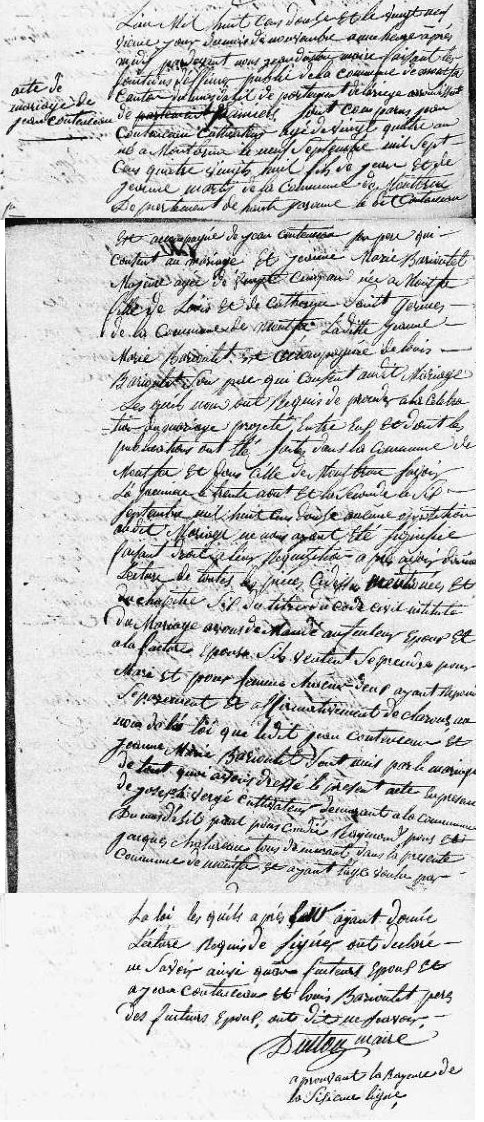 acte de
mariage de
jean contareau
L'an Mil huit cens douse Et le vingt neuf
vieme jour du mois de novembre a une heure après
midi par devant nous jean dutou maire faisant les
fonctions d'officier public de la commune de montfa
Canton du mas d'asil département de larriege arrondissement
de pamiers sont comparus jean
Contareau Cultivateur agé de vingt quatre an
né a Montbrun le neuf Septembre mil Sept
Cens quatre vingts huit fils de jean Et de
jeanne marty de la Commune de Montbrun
Département de haute garonne le dit Contareau
Est accompagné de jean contareau son pere qui
Consent au mariage Et jeanne Marie Barioulet
Majeure agée de vingt cinq an née a Montfa
fille de Louis Et de Catherine Saint Germes
de la Commune de Montfa Laditte Jeanne
Marie Barioulet Est accompagnée de louis
Barioulet Son pere qui Consent audit Mariage
Les quels nous ont Requis de proceder a la Celebra
tion du mariage projeté Entre Eux Et dont les
publications ont été faites dans la Commune de
Montfa Et dans Celle de Montbrun savoir
La premiere le trente aout Et la Seconde le Six
Septembre mil huit Cens douse aucune opposition
audit Mariage ne nous ayant Eté signifiée
faisant droit a leur Requisition après avoir donné
Lecture de toutes les pieces Cidessus mentionées Et
du chapitre Six du titre du Code civil intitulé
Du Mariage avons demandé au futeur Epoux Et
a la future Epouse Sils veulent Se prendre pour
Mari Et pour femme chacun deux ayant Repondu
Separement Et affirmativement declarons au
nom de la loi que ledit jean contareau Et
Jeanne Marie Barioulet Sont unis par le mariage
de tout quoi avons dressé le present acte En presence
de joseph Vergé Cultivateur demurant a la Commune
Du mas d'asil paul pons Raymond pons Et
jacques tous demurant dans la presente
Commune de Montfa Et ayant l'age voulu par
La loi les quels après leur ayant donné
Lecture Requis de Signer ont declaré
ne Savoir ainsi que les futeurs Epoux Et
a jean contareau Et louis Barioulet peres
Des futeurs Epoux, ont dit ne Savoir
Dutou maire
aprouvant la Rayure de
la Sixieme ligne